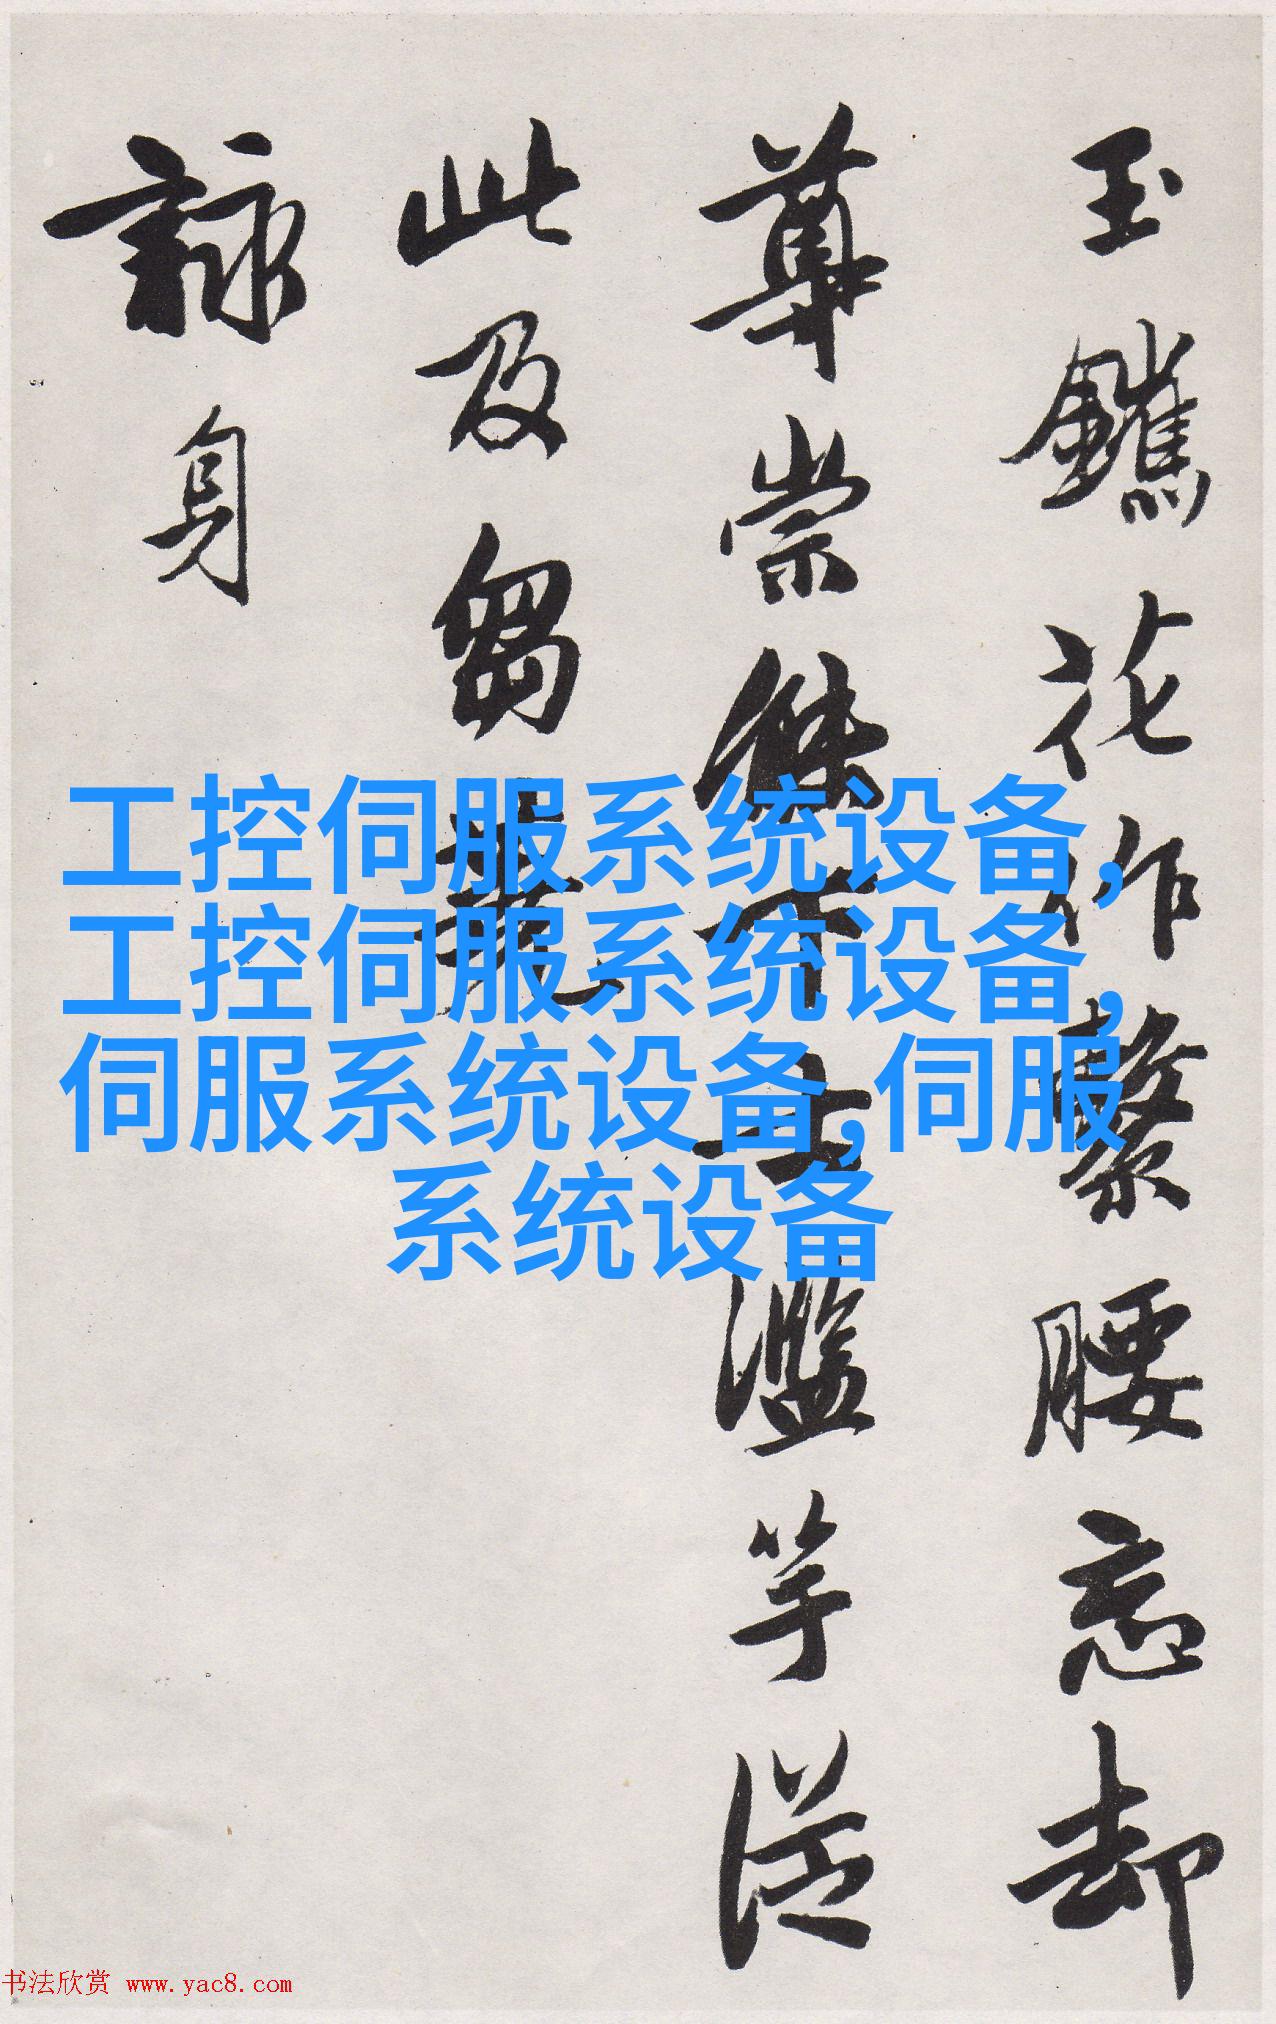 玉鑣花作繫腰忘却
尊崇傑下士濫竽從
此及芻蕘
詠身
工控伺服系统设备,
工控伺服系统设备,
伺服系统设备,伺服
系统设备
书法欣赏 www.yac8.com